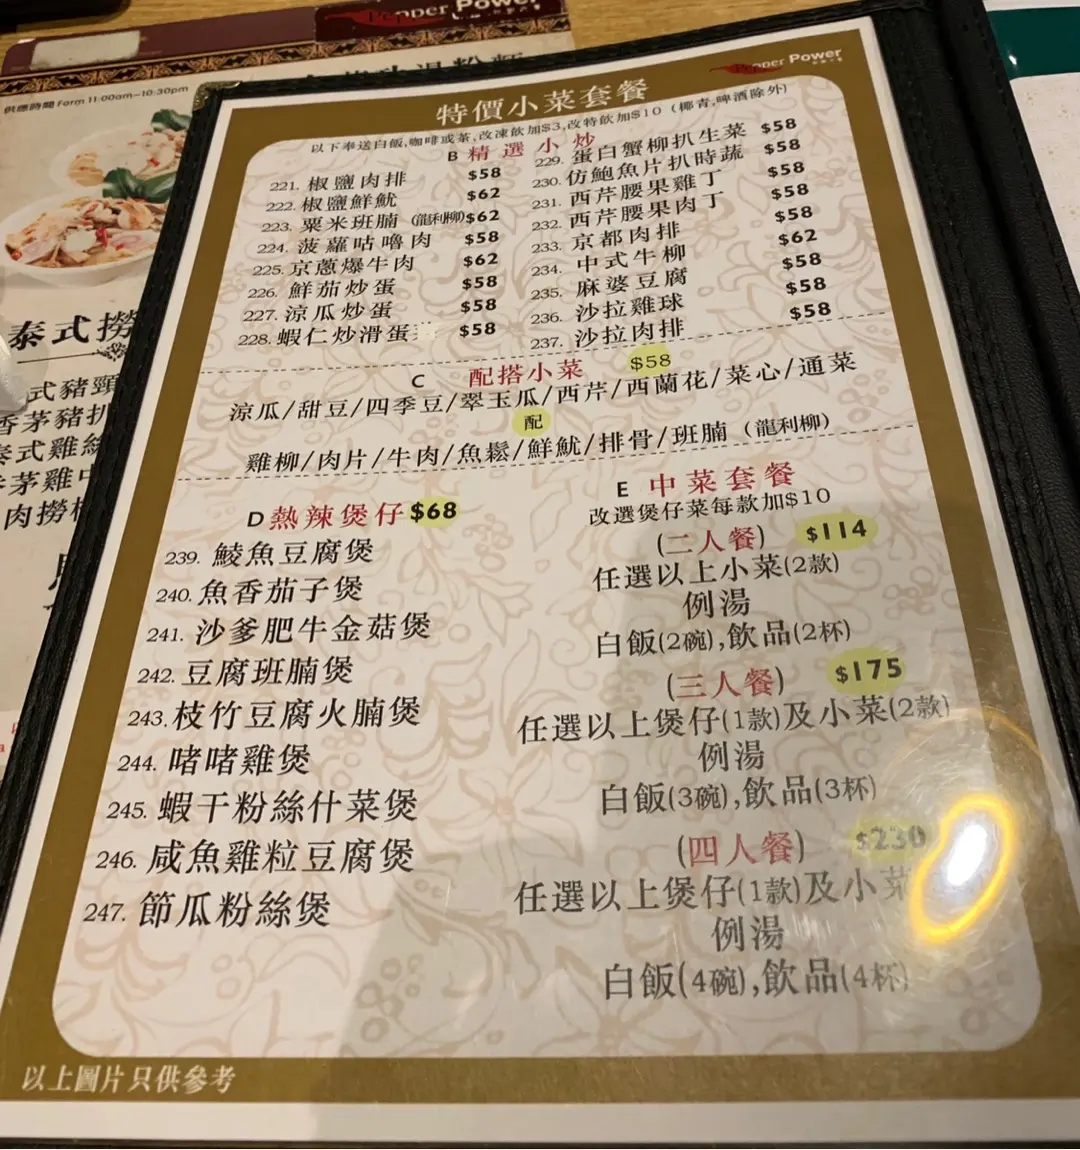 Pepper Power
供應時間 Form 11:00am-10:30pm
泰式撈
式豬頸
香茅豬扒
泰式雞絲
茅雞中
肉撈
Pepper Power
特價小菜套餐
以下奉送白飯,咖啡或茶,改凍飲加$3,改特飲加$10 (椰青,啤酒除外)
B 精選小炒
221. 椒鹽肉排 $58
222. 椒鹽鮮魷 $62
223. 粟米班腩 (龍利柳) $62
224. 菠蘿咕嚕肉 $58
225. 京蔥爆牛肉 $62
226. 鮮茄炒蛋 $58
227. 涼瓜炒蛋 $58
228. 蝦仁炒滑蛋 $58
229. 蛋白蟹柳扒生菜 $58
230. 仿鮑魚片扒時蔬 $58
231. 西芹腰果雞丁 $58
232. 西芹腰果肉丁 $58
233. 京都肉排 $58
234. 中式牛柳 $62
235. 麻婆豆腐 $58
236. 沙拉雞球 $58
237. 沙拉肉排 $58
C 配搭小菜 $58
涼瓜/甜豆/四季豆/翠玉瓜/西芹/西蘭花/菜心/通菜
配
雞柳/肉片/牛肉/魚鬆/鮮魷/排骨/班腩 (龍利柳)
D 熱辣煲仔 $68
239. 鯪魚豆腐煲
240. 魚香茄子煲
241. 沙爹肥牛金菇煲
242. 豆腐班腩煲
243. 枝竹豆腐火腩煲
244. 啫啫雞煲
245. 蝦干粉絲什菜煲
246. 咸魚雞粒豆腐煲
247. 節瓜粉絲煲
E 中菜套餐
改選煲仔菜每款加$10
(二人餐) $114
任選以上小菜(2款)
例湯
白飯(2碗),飲品(2杯)
(三人餐) $175
任選以上煲仔(1款)及小菜(2款)
例湯
白飯(3碗),飲品(3杯)
(四人餐) $230
任選以上煲仔(1款)及小菜
例湯
白飯(4碗),飲品(4杯)
以上圖片只供參考